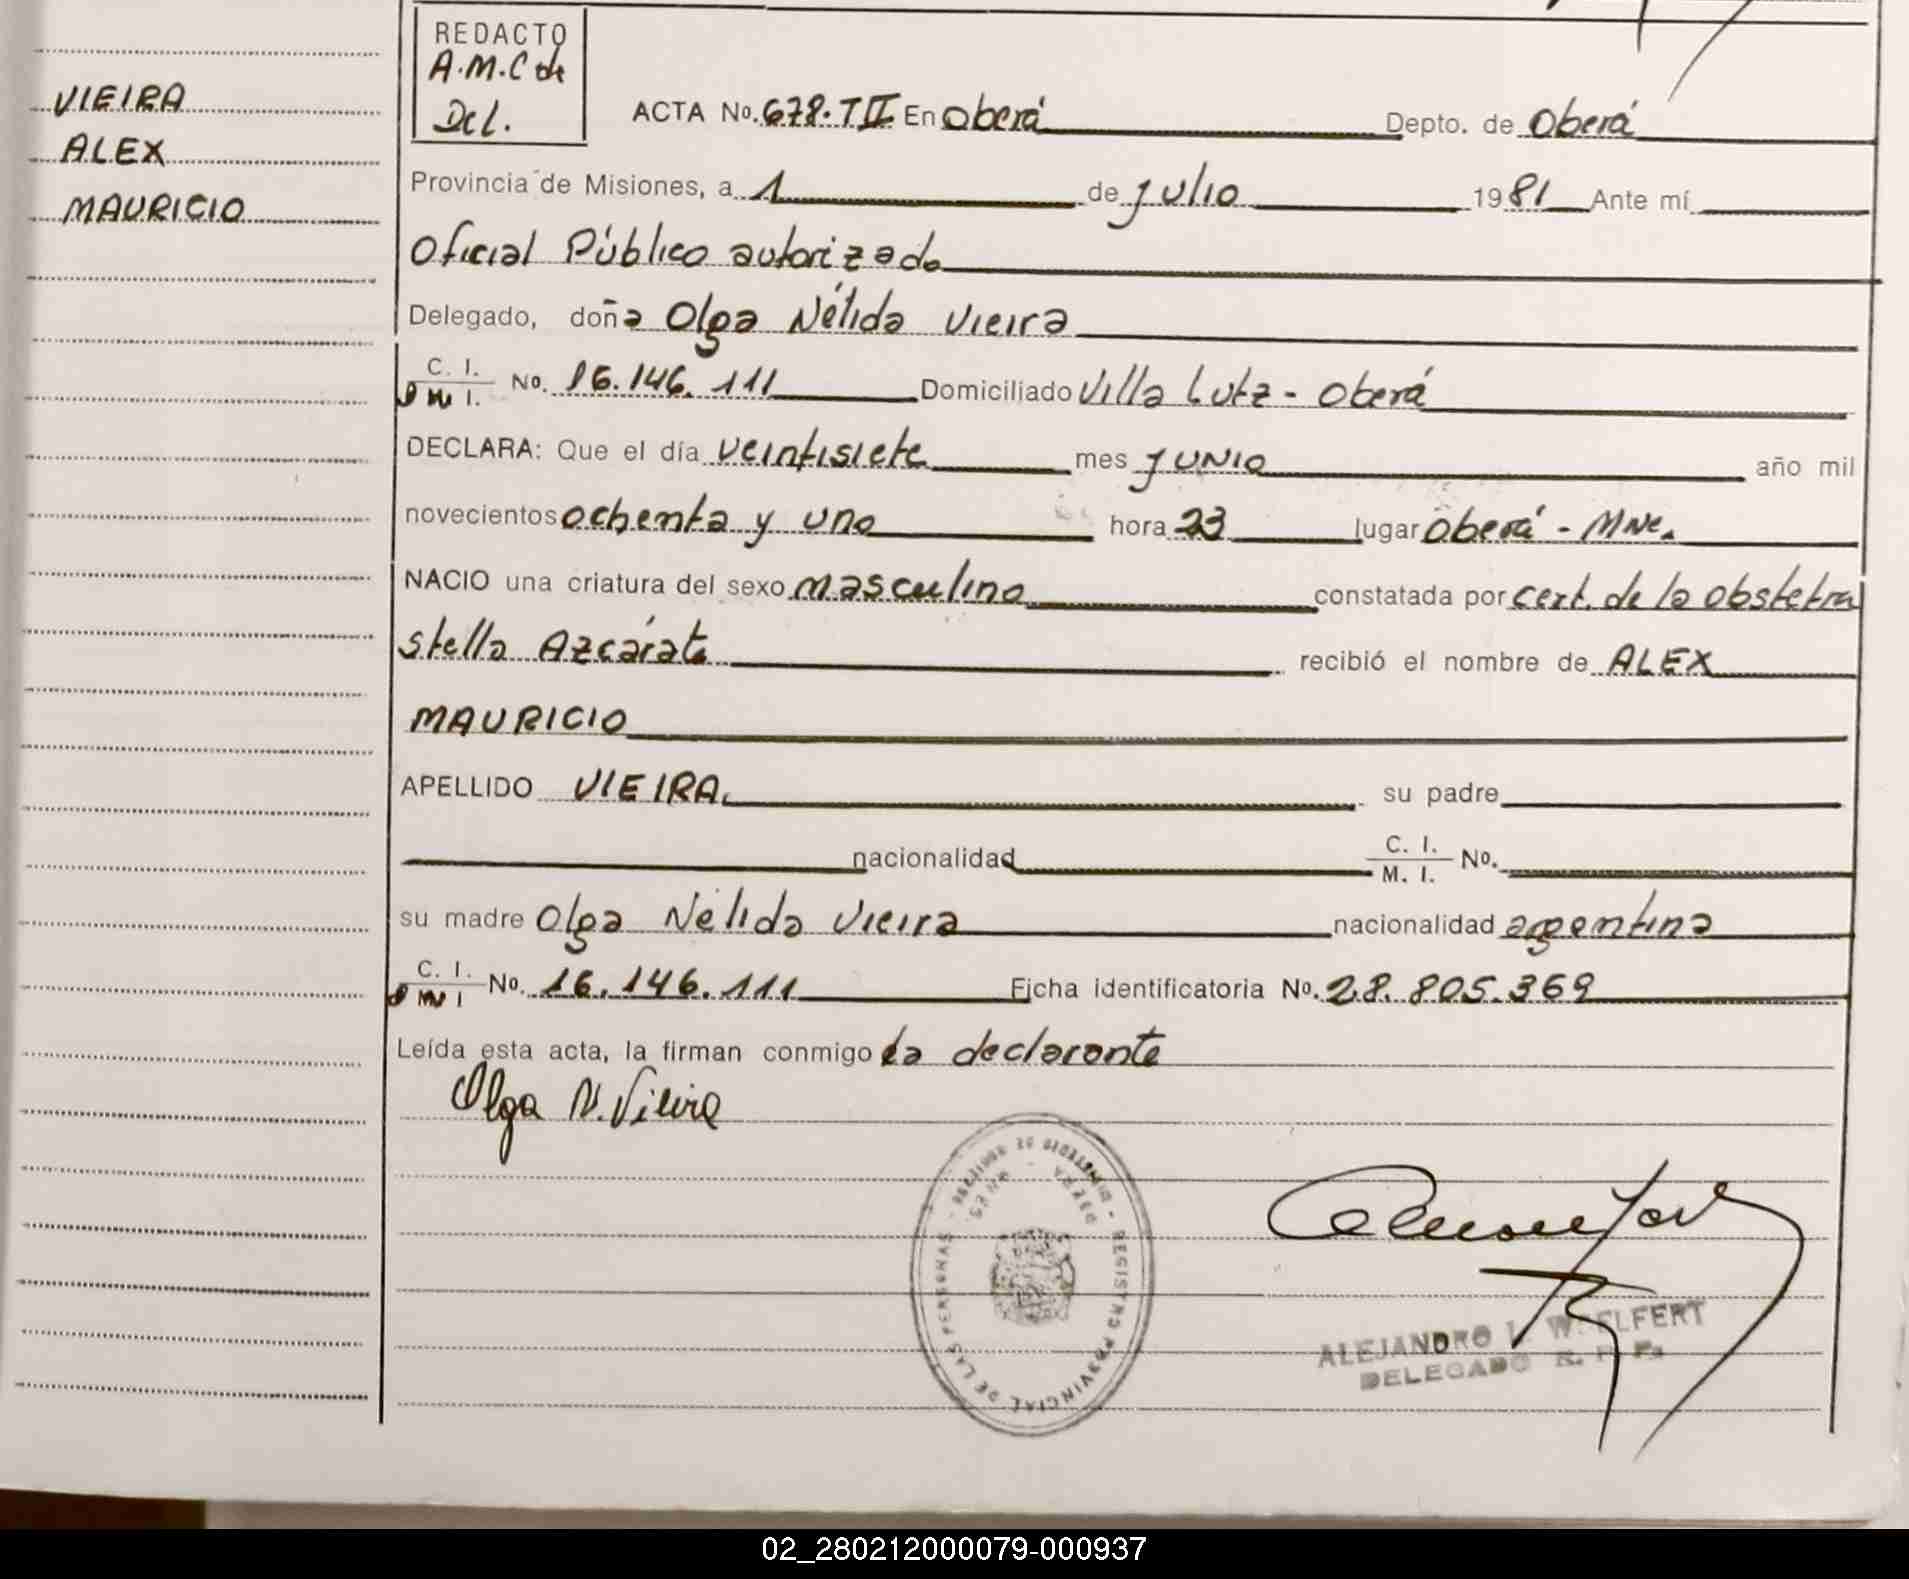 VIEIRA
ALEX
MAURICIO
REDACTO
A.M.C de
Del.
ACTA No. 678.TII En Oberá Depto. de Oberá
Provincia de Misiones, a 1 de julio 1981 Ante mí
Oficial Público autorizado
Delegado, doña Olga Nélida Vieira
C. I. No. 16.146.111 Domiciliado Villa Lutz - Oberá
D M I.
DECLARA: Que el día veintisiete mes junio año mil
novecientos ochenta y uno hora 23 lugar Oberá - Mnes.
NACIO una criatura del sexo masculino constatada por cert. de la obstetra
Stella Azcárate recibió el nombre de ALEX
MAURICIO
APELLIDO VIEIRA. su padre
nacionalidad C. I. No.
M. I.
su madre Olga Nélida Vieira nacionalidad argentina
C. I. No. 16.146.111 Ficha identificatoria No. 28.805.369
D M I
Leída esta acta, la firman conmigo la declarante
Olga N. Vieira
REGISTRO PROVINCIAL DE LAS PERSONAS
ALEJANDRO L. WELFERT
DELEGADO R. P. P.
02_280212000079-000937